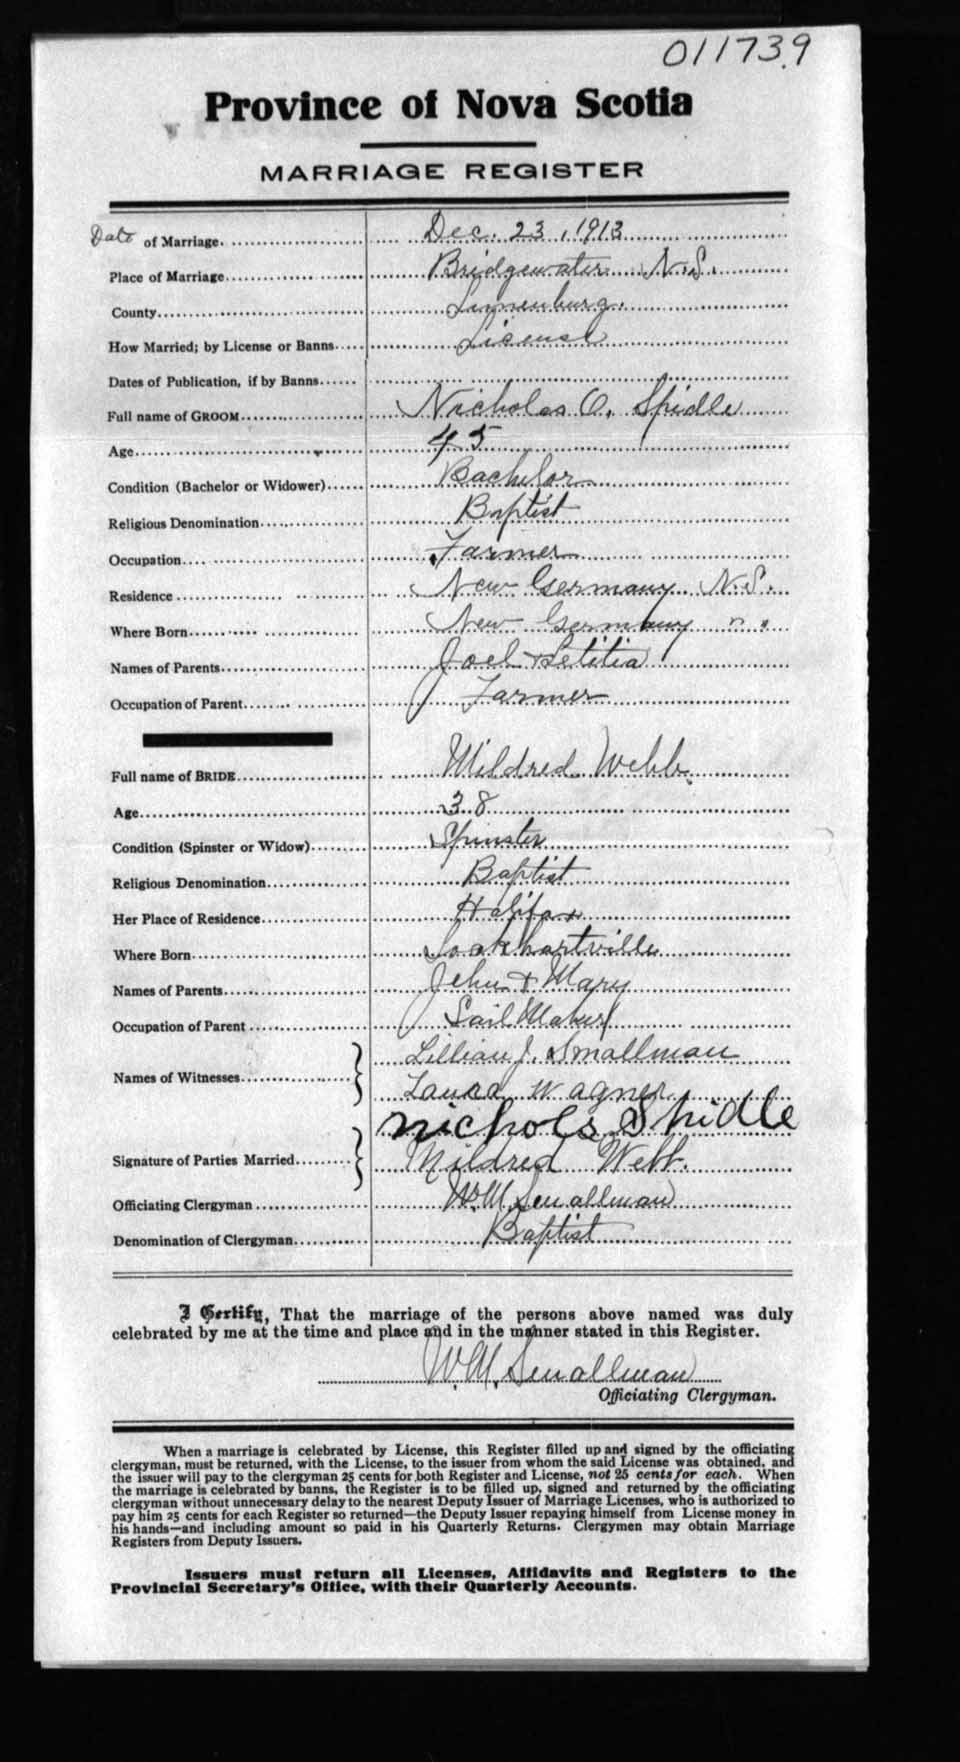 011739
Province of Nova Scotia
MARRIAGE REGISTER
Date of Marriage. Dec. 23, 1913
Place of Marriage Bridgewater N.S.
County Lunenburg.
How Married; by License or Banns License
Dates of Publication, if by Banns
Full name of GROOM Nicholas O. Spidle
Age 45
Condition (Bachelor or Widower) Bachelor
Religious Denomination Baptist
Occupation Farmer
Residence New Germany N.S.
Where Born New Germany " "
Names of Parents Joel & Letitia
Occupation of Parent Farmer
Full name of BRIDE Mildred Webb.
Age 38
Condition (Spinster or Widow) Spinster
Religious Denomination Baptist
Her Place of Residence Halifax
Where Born Lockhartville
Names of Parents John & Mary
Occupation of Parent Sail Maker
Names of Witnesses Lillian J. Smallman
Laura Wagner
Signature of Parties Married nichols Spidle
Mildred Webb.
Officiating Clergyman W.M. Smallman
Denomination of Clergyman Baptist
I Certify, That the marriage of the persons above named was duly
celebrated by me at the time and place and in the manner stated in this Register.
W.M. Smallman
Officiating Clergyman.
When a marriage is celebrated by License, this Register filled up and signed by the officiating
clergyman, must be returned, with the License, to the issuer from whom the said License was obtained, and
the issuer will pay to the clergyman 25 cents for both Register and License, not 25 cents for each. When
the marriage is celebrated by banns, the Register is to be filled up, signed and returned by the officiating
clergyman without unnecessary delay to the nearest Deputy Issuer of Marriage Licenses, who is authorized to
pay him 25 cents for each Register so returned—the Deputy Issuer repaying himself from License money in
his hands—and including amount so paid in his Quarterly Returns. Clergymen may obtain Marriage
Registers from Deputy Issuers.
Issuers must return all Licenses, Affidavits and Registers to the
Provincial Secretary's Office, with their Quarterly Accounts.